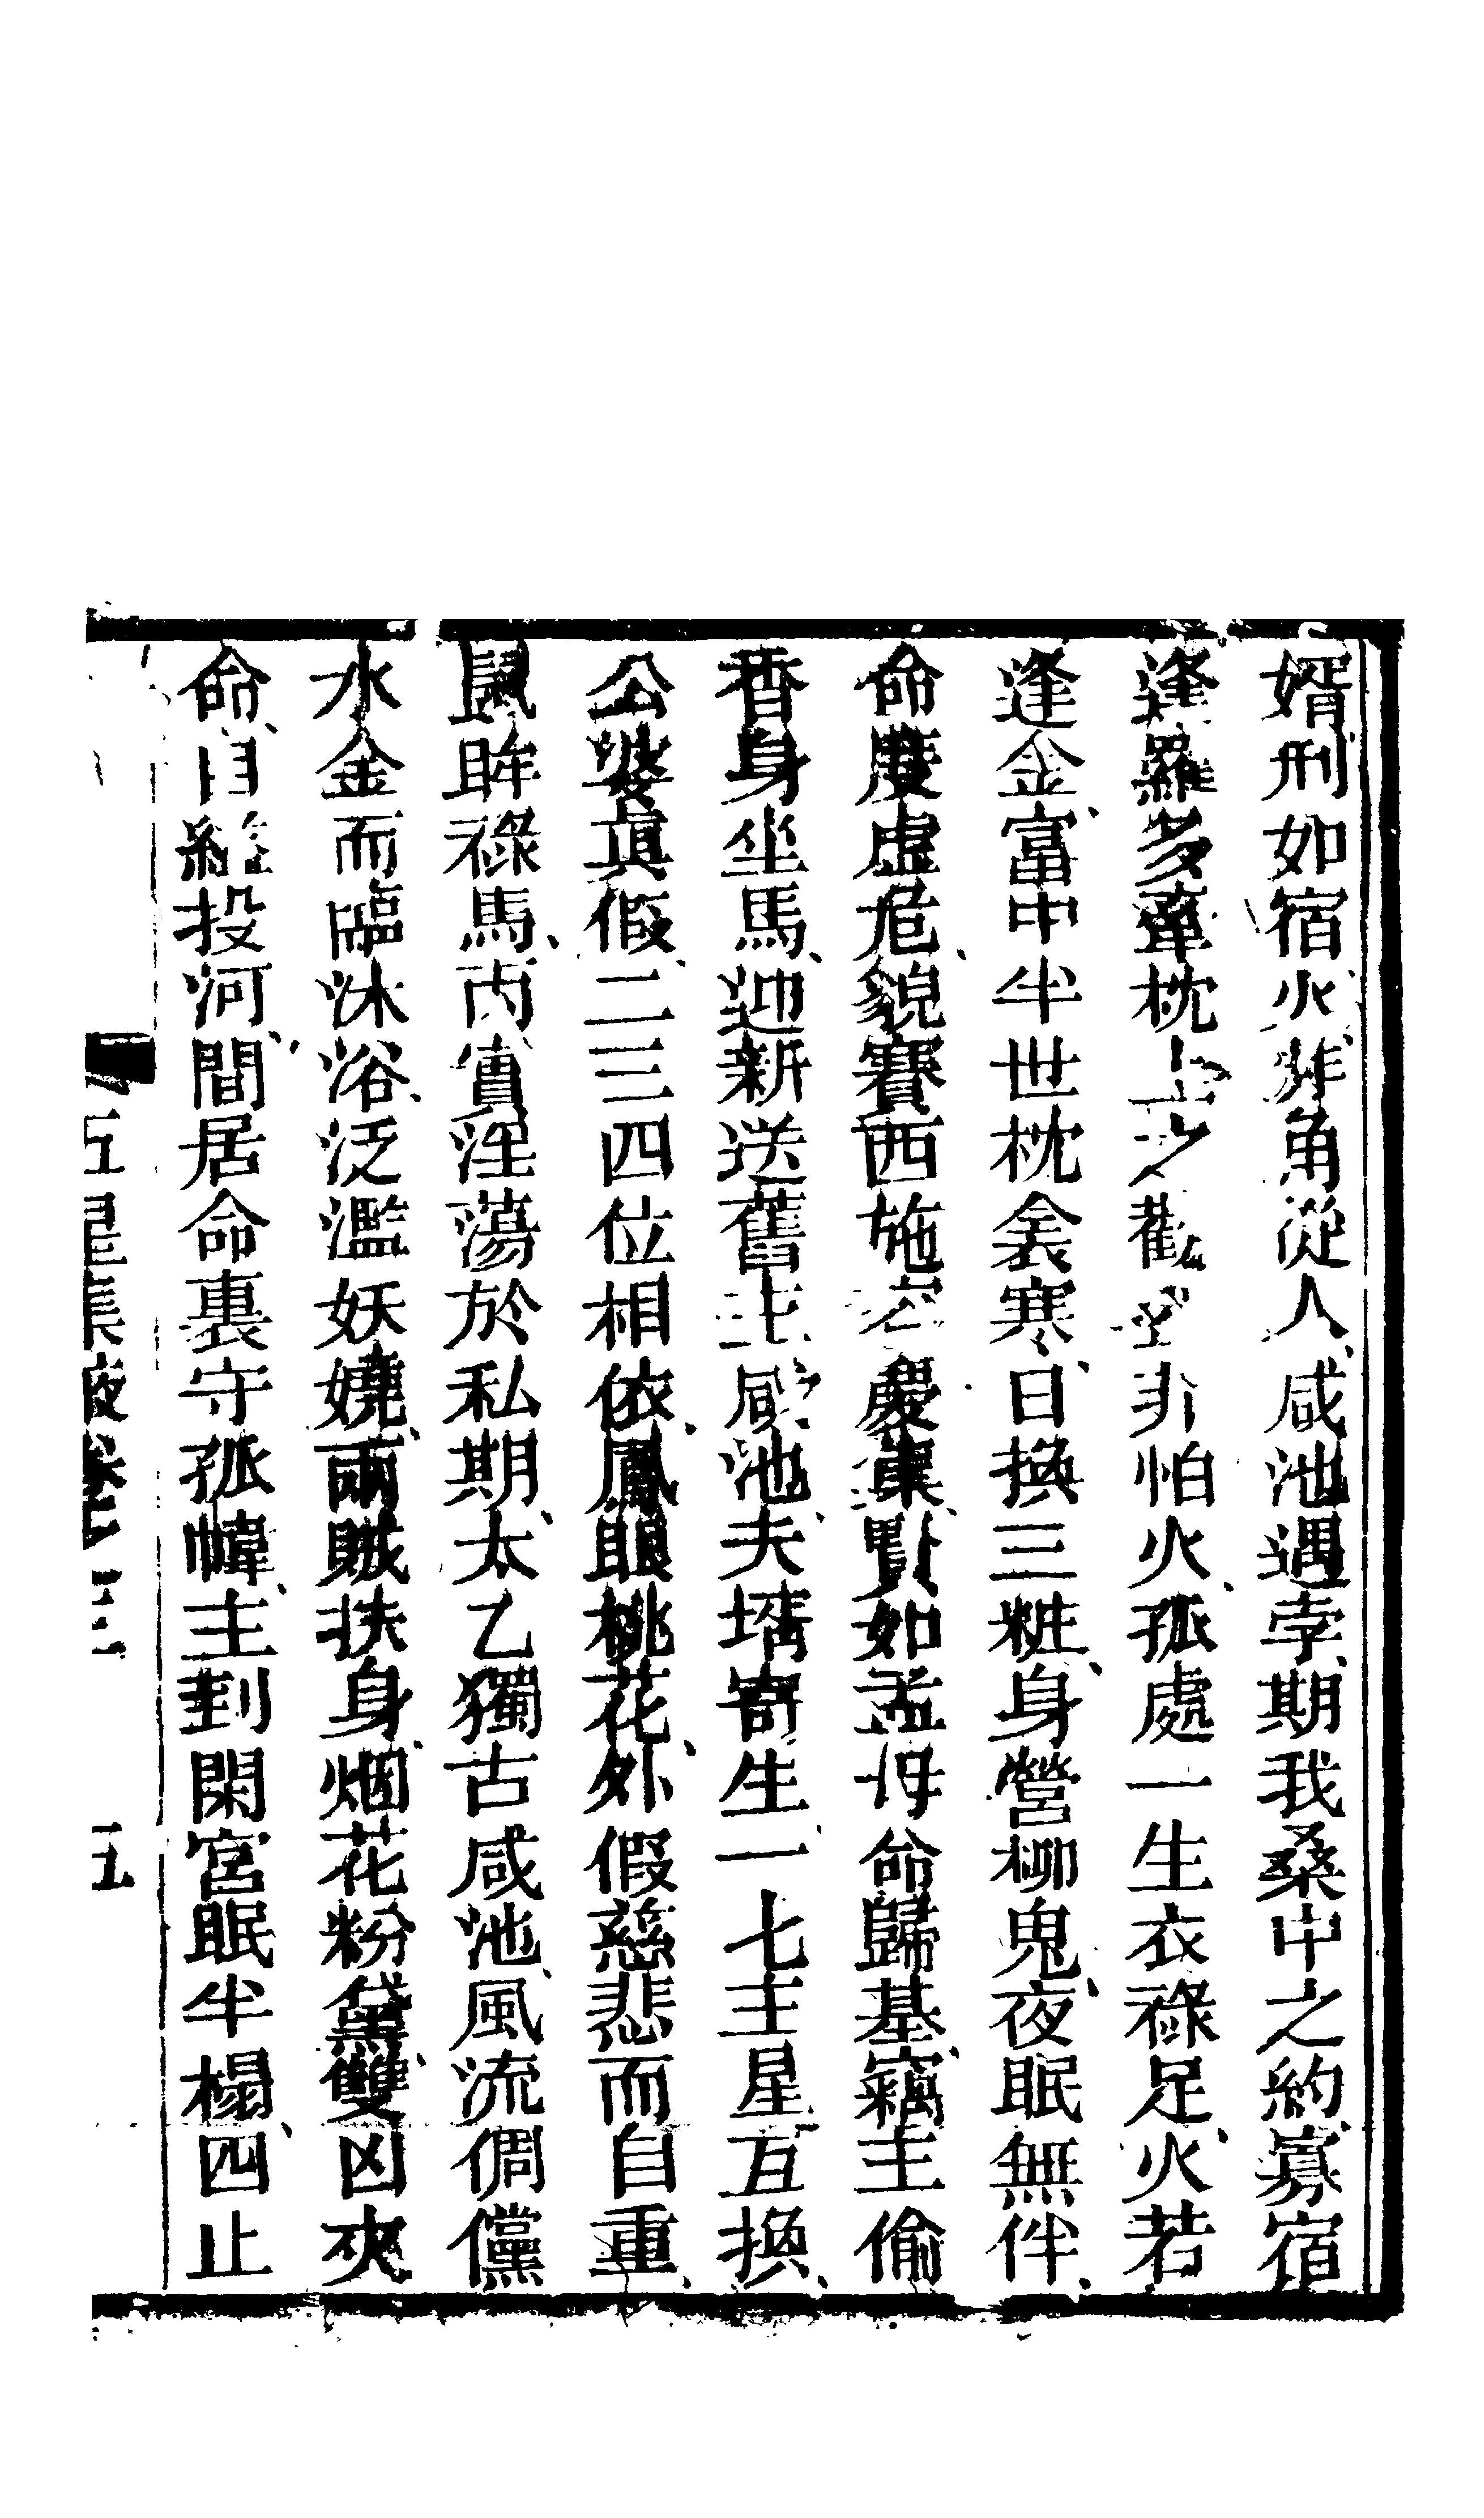 婿刑如宿火非角從人咸池遇孛期我桑中之約寡宿
逢羅多薄枕上之歡 非怕火孤處一生衣祿足火若
逢金富中半世枕衾寒日換三粧身營柳鬼夜眠無伴
命度虛危貌賽西施 慶集點如孟母命歸基竊主偷
香身坐馬迎新送舊土咸池夫壻寄生一七主星互換
公婆眞假二三四位相依鳳眼桃花外假慈悲而自重
鼠眸祿馬丙實淫蕩於私期太乙獨古咸池風流倜儻
水金而臨沐浴泛濫妖嬈兩賊扶身烟花粉黛雙凶夾
命自經投河間居命裏守孤幃主到閑宮眠半榻四止
五星長夜卷 三 五